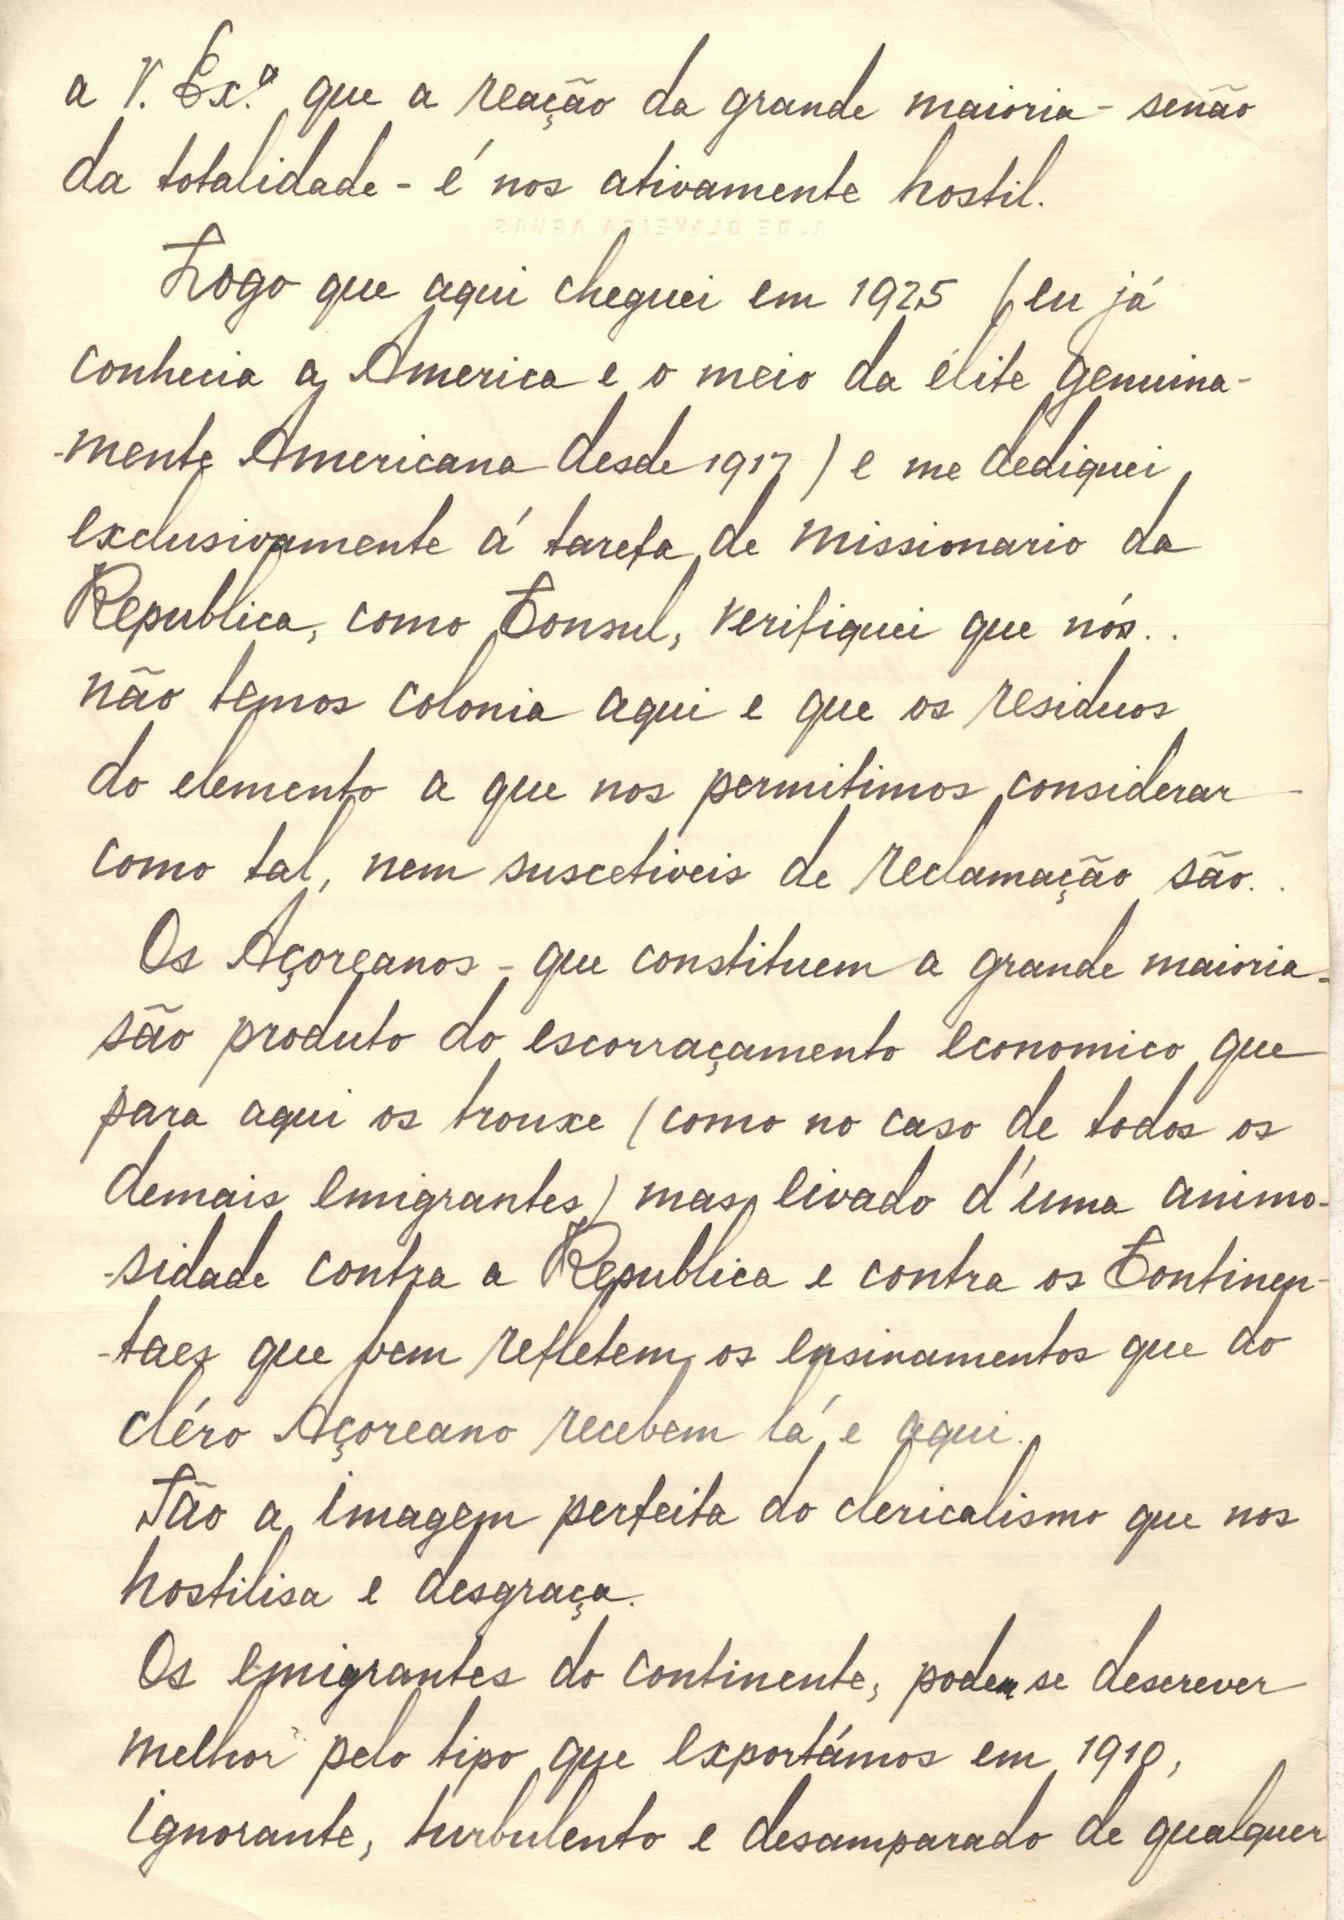 a V. Ex.ª que a reação da grande maioria - senão
da totalidade - é nos ativamente hostil.
Logo que aqui cheguei em 1925 (eu já
conhecia a America e o meio da élite genuina-
-mente Americana desde 1917) e me dediquei
exclusivamente á tarefa de missionario da
Republica, como Consul, verifiquei que nós..
não temos colonia aqui e que os residuos
do elemento a que nos permitimos considerar
como tal, nem suscetiveis de reclamação são..
Os Açoreanos - que constituem a grande maioria -
são produto do escorraçamento economico que
para aqui os trouxe (como no caso de todos os
demais emigrantes) mas eivado d'uma animo-
-sidade contra a Republica e contra os Continen-
-taes que bem refletem os ensinamentos que do
cléro Açoreano recebem lá e aqui.
São a imagem perfeita do clericalismo que nos
hostilisa e desgraça.
Os emigrantes do continente, podem se descrever
melhor pelo tipo que exportámos em 1910,
ignorante, turbulento e desamparado de qualquer